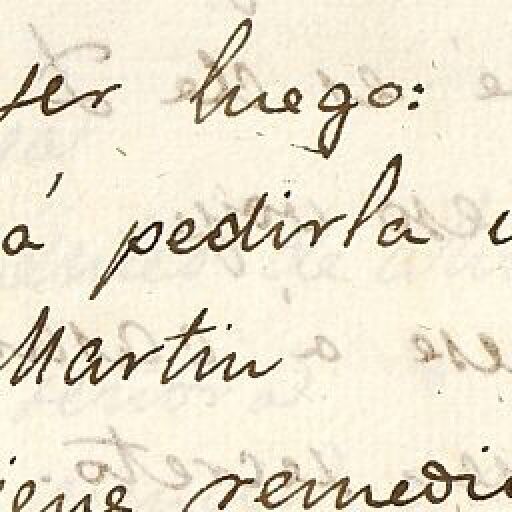 ser luego:
á pedirla
Martin
iene remedio